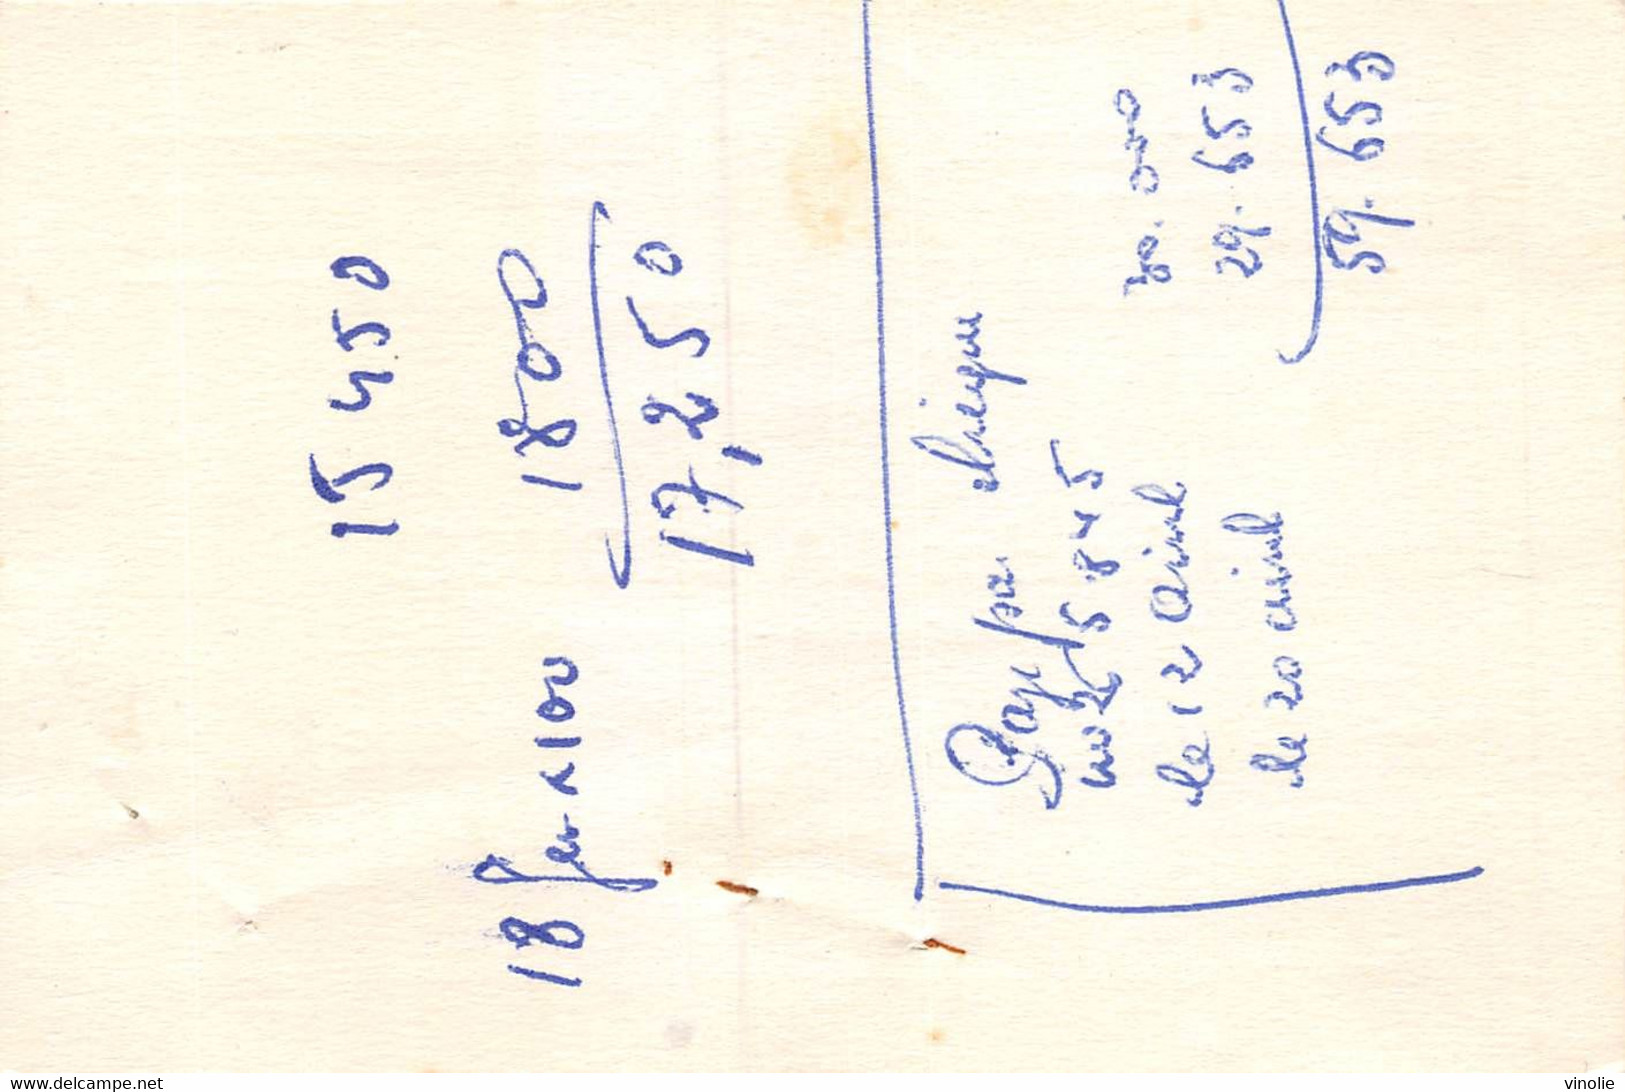 15 450
18 fer x 100 1800
17,250
Payé par chèque
no 25845
30.000
le 12 Avril 29.653
le 20 avril
59.653
www.delcampe.net
vinolie